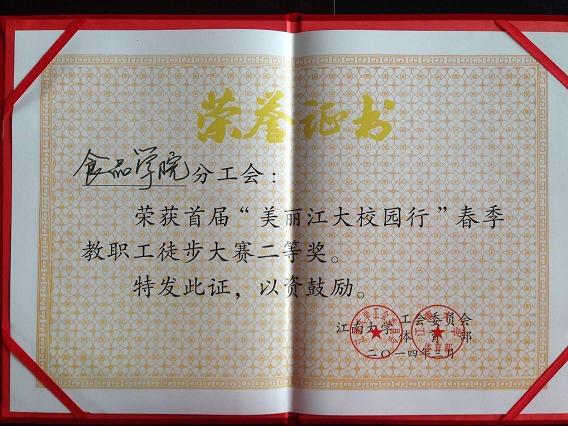 荣誉证书
食品学院分工会：
荣获首届“美丽江大校园行”春季
教职工徒步大赛二等奖。
特发此证，以资鼓励。
江南大学 工会委员会
体育部
二〇一四年三月